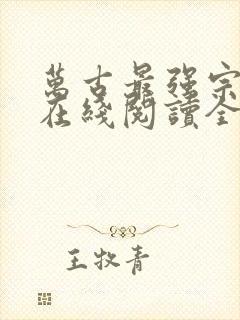 萬古最强宗
在綫閱讀全
王牧青